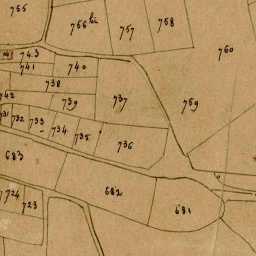 755
756 bis
757
758
760
743
741
740
738
742
739
737
759
731
732
733
734
735
736
683
682
681
724
723